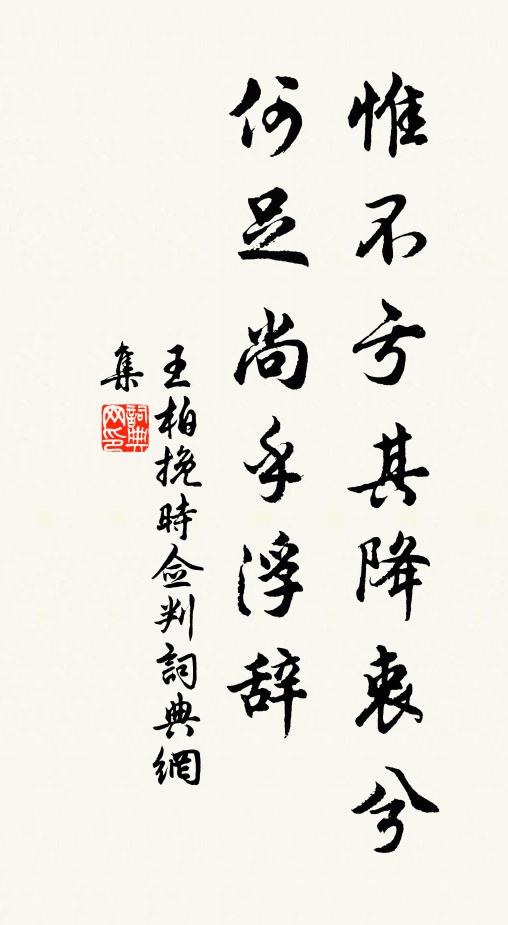 惟不亏其降衷兮
何足尚乎浮辞
王柏挽時佥判詞典網
集
詞典网印